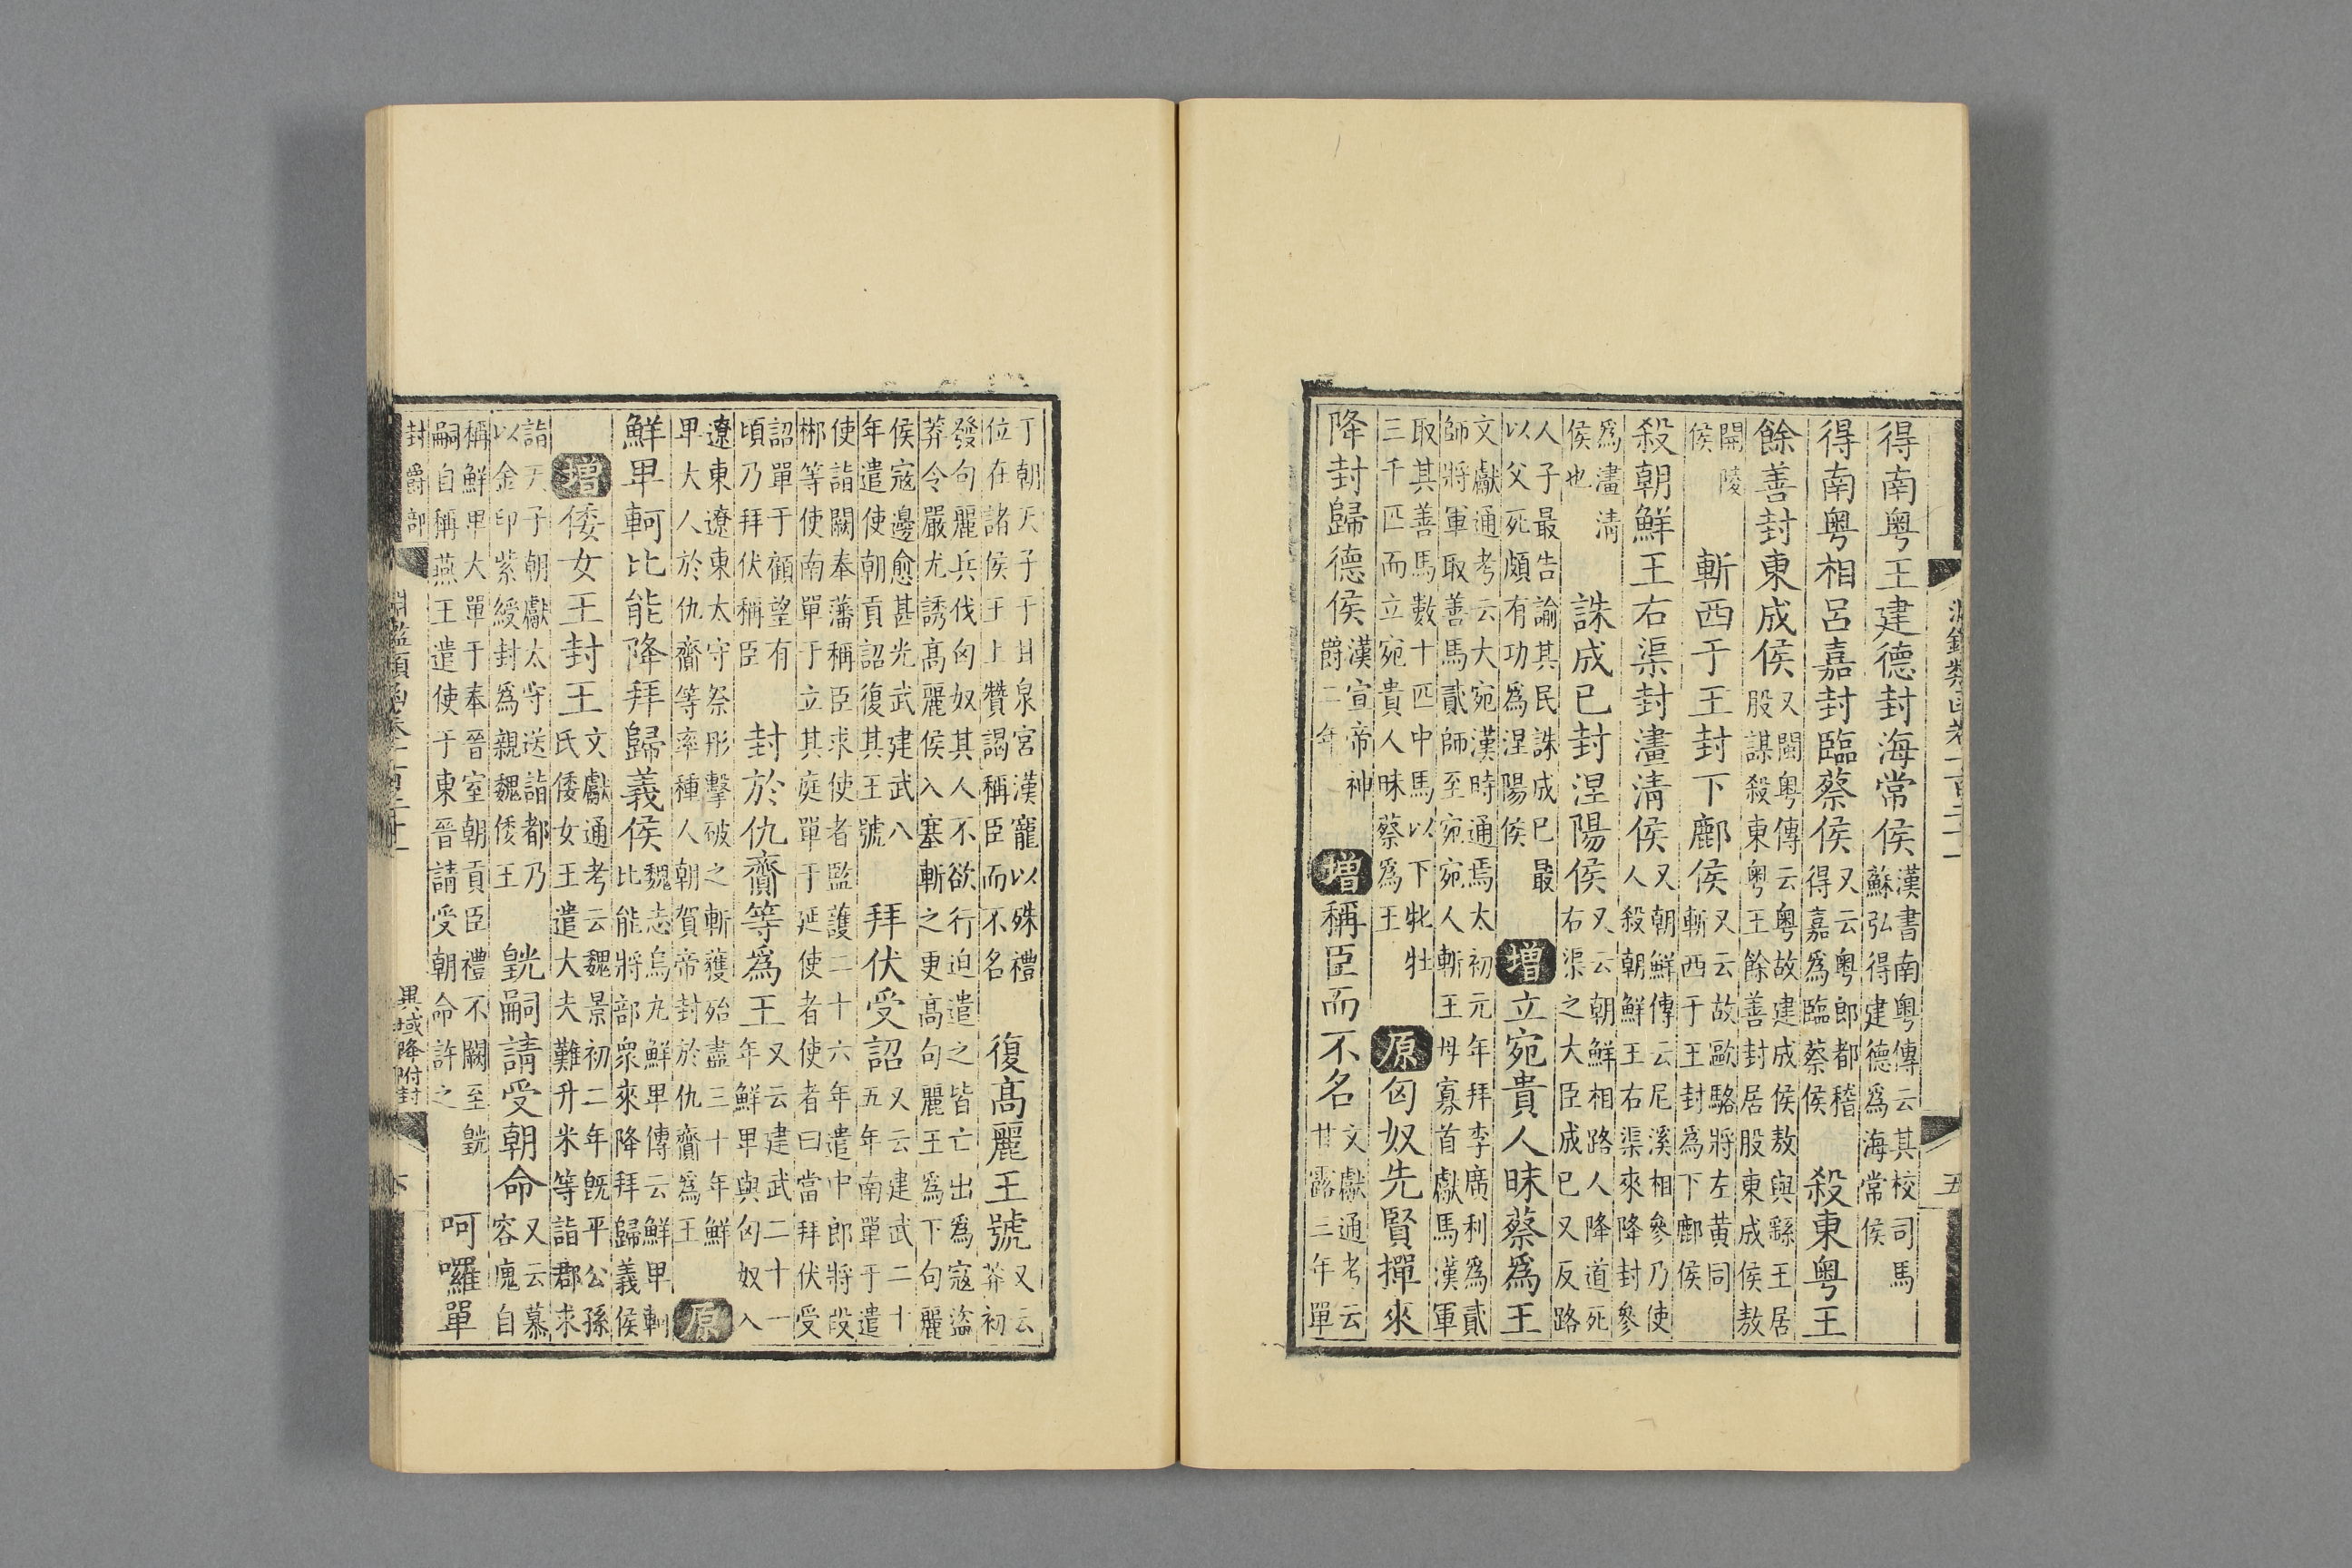 得南粤王建德封海常侯
漢書南粤傳云其校司馬
蘇弘得建德為海常侯
得南粤相呂嘉封臨蔡侯
又云粤郎都稽
得嘉為臨蔡侯
殺東粤王
餘善封東成侯
又閩粤傳云粤故建成侯敖與繇王居
股謀殺東粤王餘善封居股東成侯敖
開陵
侯
斬西于王封下鄜侯
又云故甌駱將左黄同
斬西于王封為下鄜侯
殺朝鮮王右渠封澅清侯
又朝鮮傳云尼溪相參乃使
人殺朝鮮王右渠來降封參
為澅清
侯也
誅成已封涅陽侯
又云朝鮮相路人降道死
右渠之大臣成已又反路
人子最告諭其民誅成已最
以父死頗有功為涅陽侯
增立宛貴人昧蔡為王
文獻通考云大宛漢時通焉太初元年拜李廣利為貳
師將軍取善馬貳師至宛宛人斬王母寡首獻馬漢軍
取其善馬數十匹中馬以下牝牡
三千匹而立宛貴人昧蔡為王
原匈奴先賢撣來
降封歸德侯
漢宣帝神
爵二年
增稱臣而不名
文獻通考云
甘露三年單
于朝天子于甘泉宮漢寵以殊禮
位在諸侯王上贊謁稱臣而不名
復高麗王號
又云
莽初
發句麗兵伐匈奴其人不欲行迫遣之皆亡出為寇盜
莽令嚴尤誘高麗侯入塞斬之更高句麗王為下句麗
侯寇邊愈甚光武建武八
年遣使朝貢詔復其王號
拜伏受詔
又云建武二十
五年南單于遣
使詣闕奉藩稱臣求使者監護二十六年遣中郎將段
郴等使南單于立其庭單于延使者使者曰當拜伏受
詔單于顧望有
頃乃拜伏稱臣
封於仇賷等為王
又云建武二十一
年鮮卑與匈奴入
遼東遼東太守祭肜擊破之斬獲殆盡三十年鮮
卑大人於仇賷等率種人朝賀帝封於仇賷為王
原
鮮卑軻比能降拜歸義侯
魏志烏丸鮮卑傳云鮮卑軻
比能將部衆來降拜歸義侯
增倭女王封王
文獻通考云魏景初二年既平公孫
氏倭女王遣大夫難升米等詣郡求
詣天子朝獻太守送詣都乃
以金印紫綬封為親魏倭王
皝嗣請受朝命
又云慕
容廆自
稱鮮卑大單于奉晉室朝貢臣禮不闕至皝
嗣自稱燕王遣使于東晉請受朝命許之
呵囉單
封爵部
異域降附封